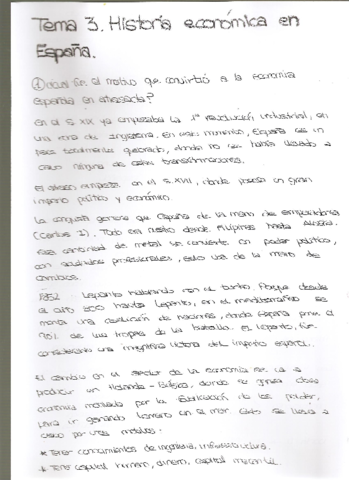 Tema 3. Historia económica en
España.
① ¿Cuál fue el motivo que convirtió a la economía
española en atrasada?
En el S. XIX ya empezaba la 1ª revolución industrial, en
una zona de Inglaterra. En ese momento, España es un
país totalmente quebrado, donde no se había llevado a
cabo ninguna de estas transformaciones.
El atraso empieza en el S. XVII, donde poseía un gran
imperio político y económico.
La conquista genera que España de la mano de emperadores
(Carlos I). Todo en nuestro desde Filipinas hasta
cantidad de metal se convierte en poder político,
con de la mano de
cambios.
Lepanto hablando con el turco. Porque desde
el año hasta Lepanto, en el mediterráneo se
monta una coalición de naciones, donde España pone el
de las tropas de la batalla. El Lepanto, fue
considerado una magnífica victoria del imperio español.
El cambio en el sector de la economía se va a
producir en Holanda - Bélgica, donde se crea clase
económica
para ir ganando terreno en el mar. Esto se lleva a
cabo por unos medios.
* Tener conocimientos de ingeniería, infraestructura.
* Tener capital humano, dinero, capital mercantil.